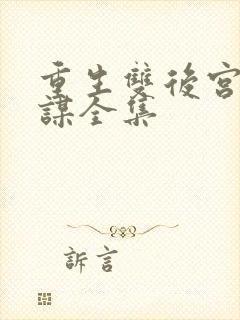 重生雙後宮
謀全集
訴言